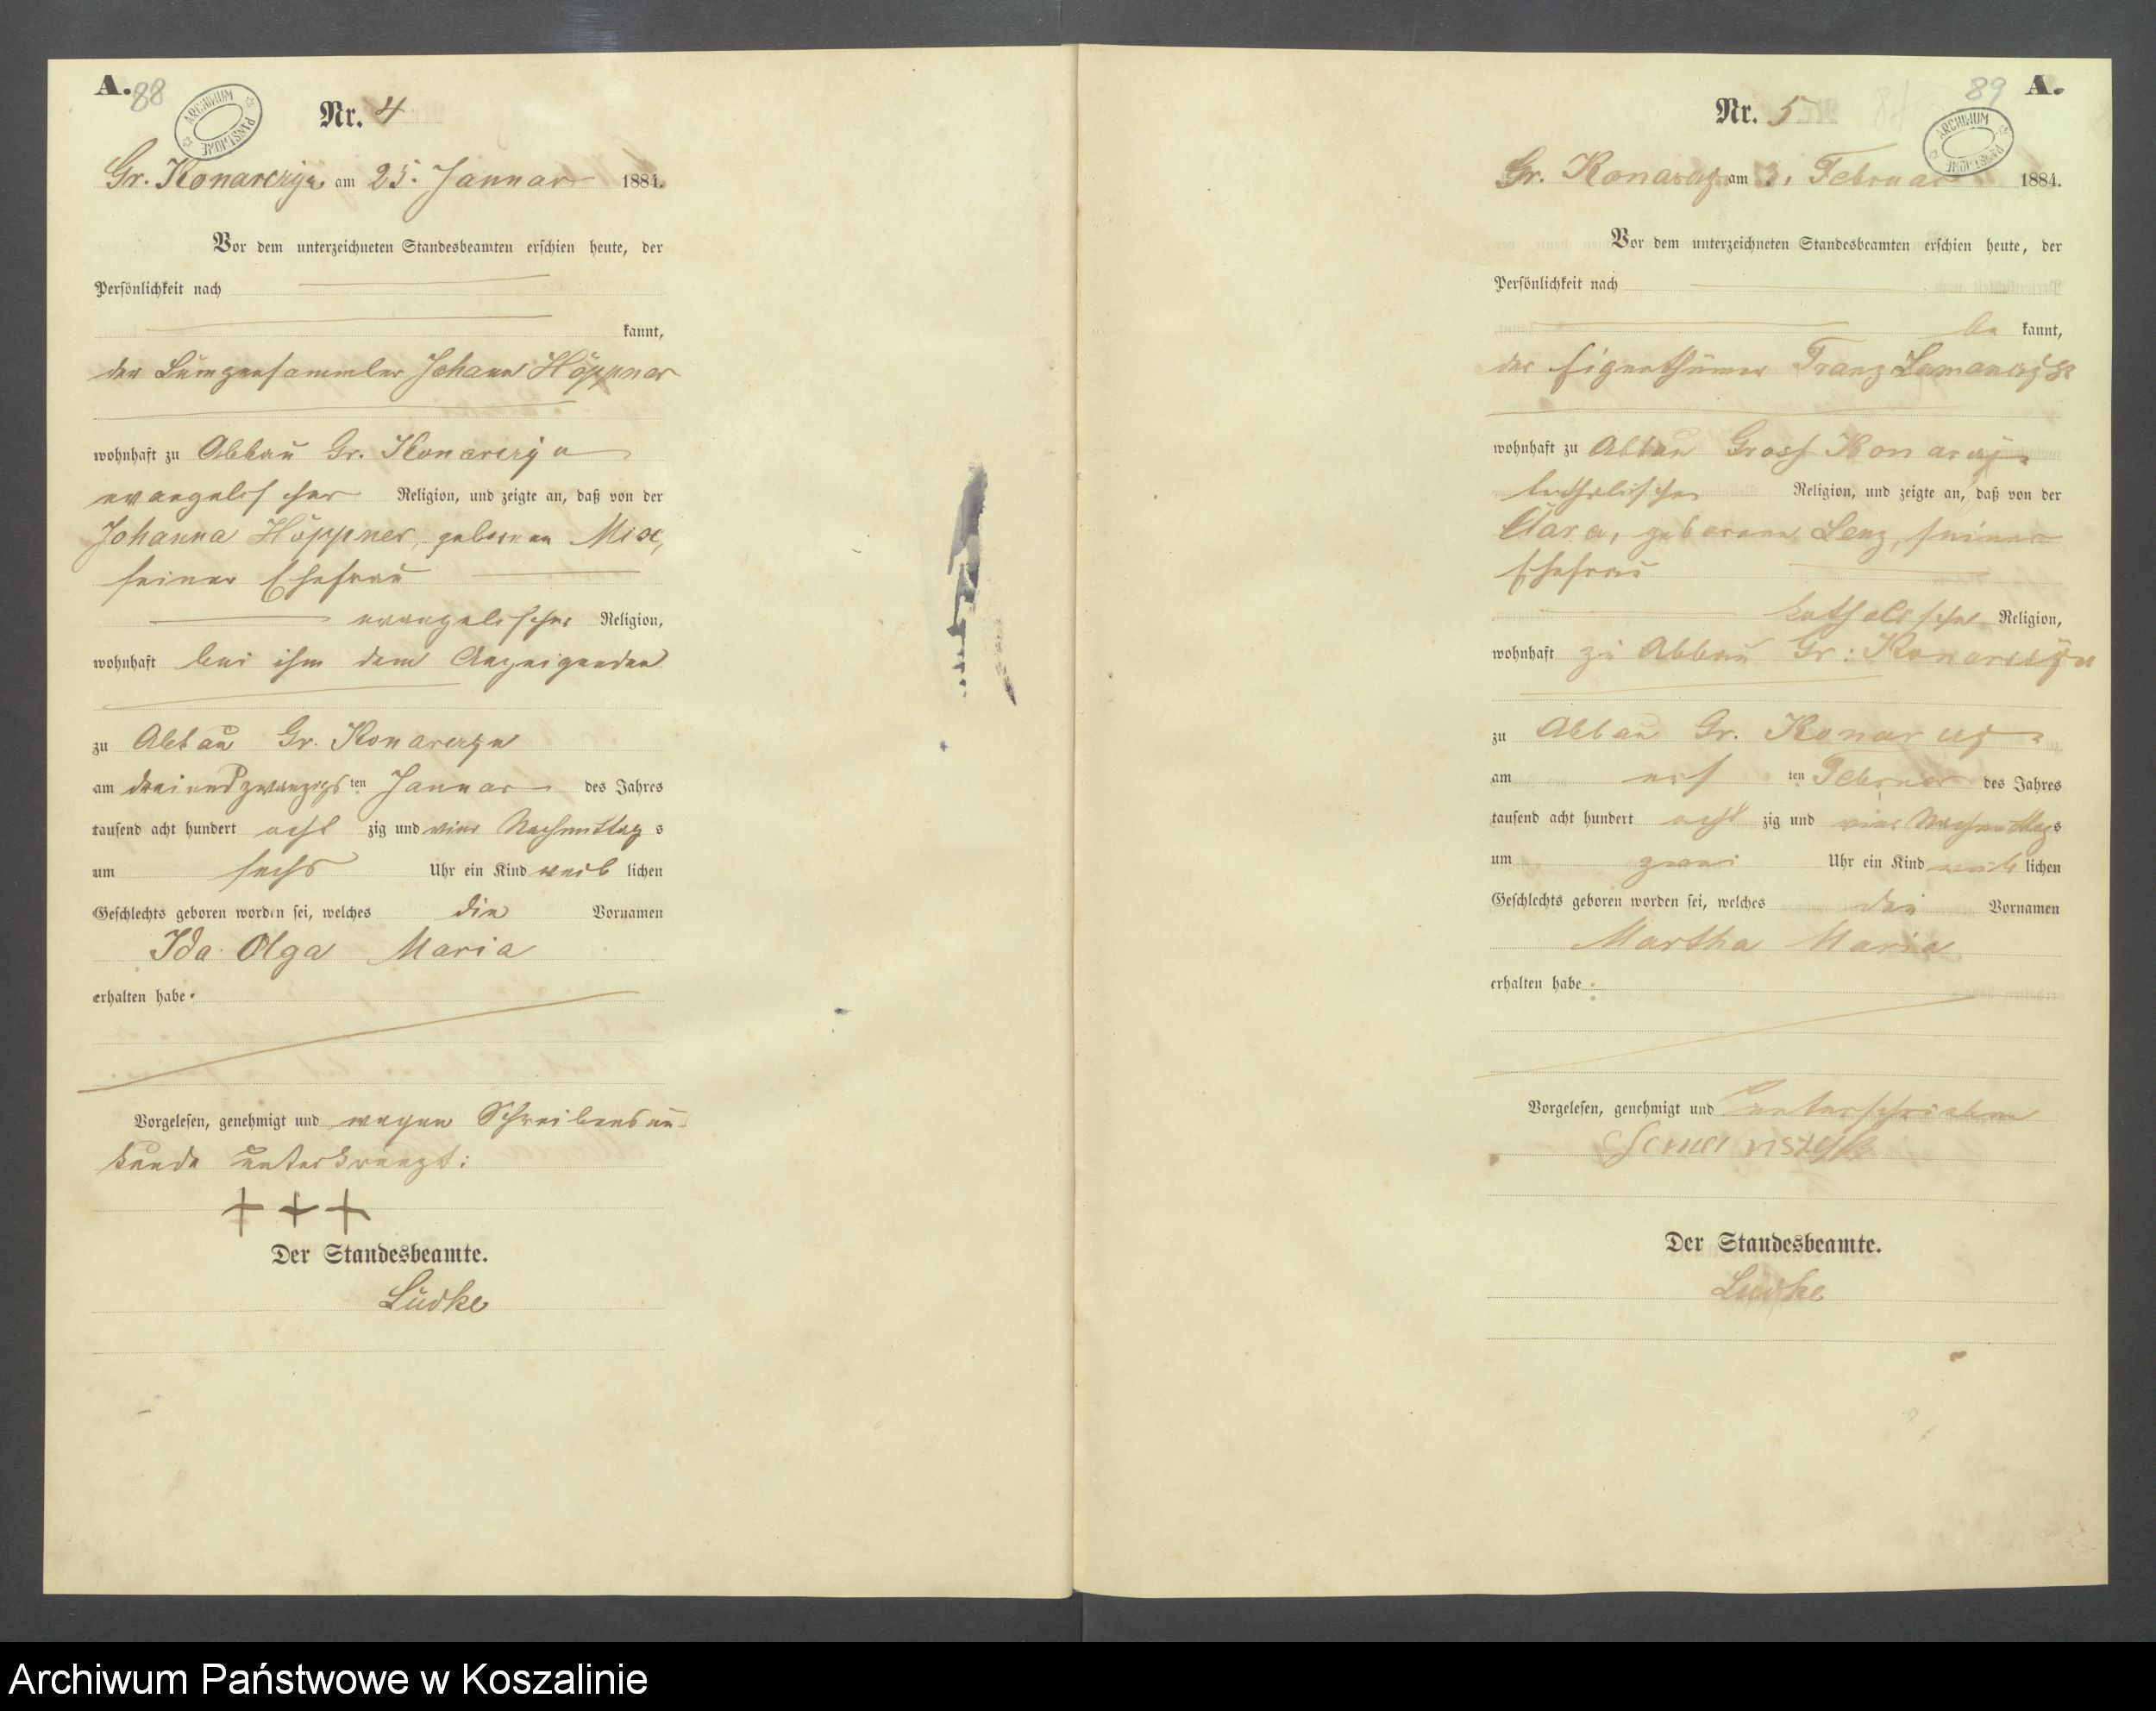 A. 88
ARCHIWUM PAŃSTWOWE
Nr. 4
Gr. Konarczyn am 25. Januar 1884.
Vor dem unterzeichneten Standesbeamten erschien heute, der
Persönlichkeit nach
kannt,
der Lumpensammler Johann Höppner
wohnhaft zu Abbau Gr. Konarczyn
evangelischer Religion, und zeigte an, daß von der
Johanna Höppner, geborenen Mix,
seiner Ehefrau
evangelischer Religion,
wohnhaft bei ihm dem Anzeigenden
zu Abbau Gr. Konarczyn
am dreiundzwanzigsten Januar des Jahres
tausend acht hundert acht zig und vier Nachmittags
um sechs Uhr ein Kind weiblichen
Geschlechts geboren worden sei, welches die Vornamen
Ida Olga Maria
erhalten habe.
Vorgelesen, genehmigt und wegen Schreibensun-
kunde unterkreuzt:
+ + +
Der Standesbeamte.
Lüdke
89 A.
ARCHIWUM PAŃSTWOWE
Nr. 5
Gr. Konarczyn am 3. Februar 1884.
Vor dem unterzeichneten Standesbeamten erschien heute, der
Persönlichkeit nach
be kannt,
der Eigenthümer Franz
wohnhaft zu Abbau Gross Konarczyn
katholischer Religion, und zeigte an, daß von der
Clara, geborene Lenz, seiner
Ehefrau
katholischer Religion,
wohnhaft zu Abbau Gr: Konarczyn
zu Abbau Gr. Konarczyn
am ersten Februar des Jahres
tausend acht hundert acht zig und vier Nachmittags
um zwei Uhr ein Kind weiblichen
Geschlechts geboren worden sei, welches die Vornamen
Martha Maria
erhalten habe.
Vorgelesen, genehmigt und unterschrieben
Der Standesbeamte.
Lüdke
Archiwum Państwowe w Koszalinie